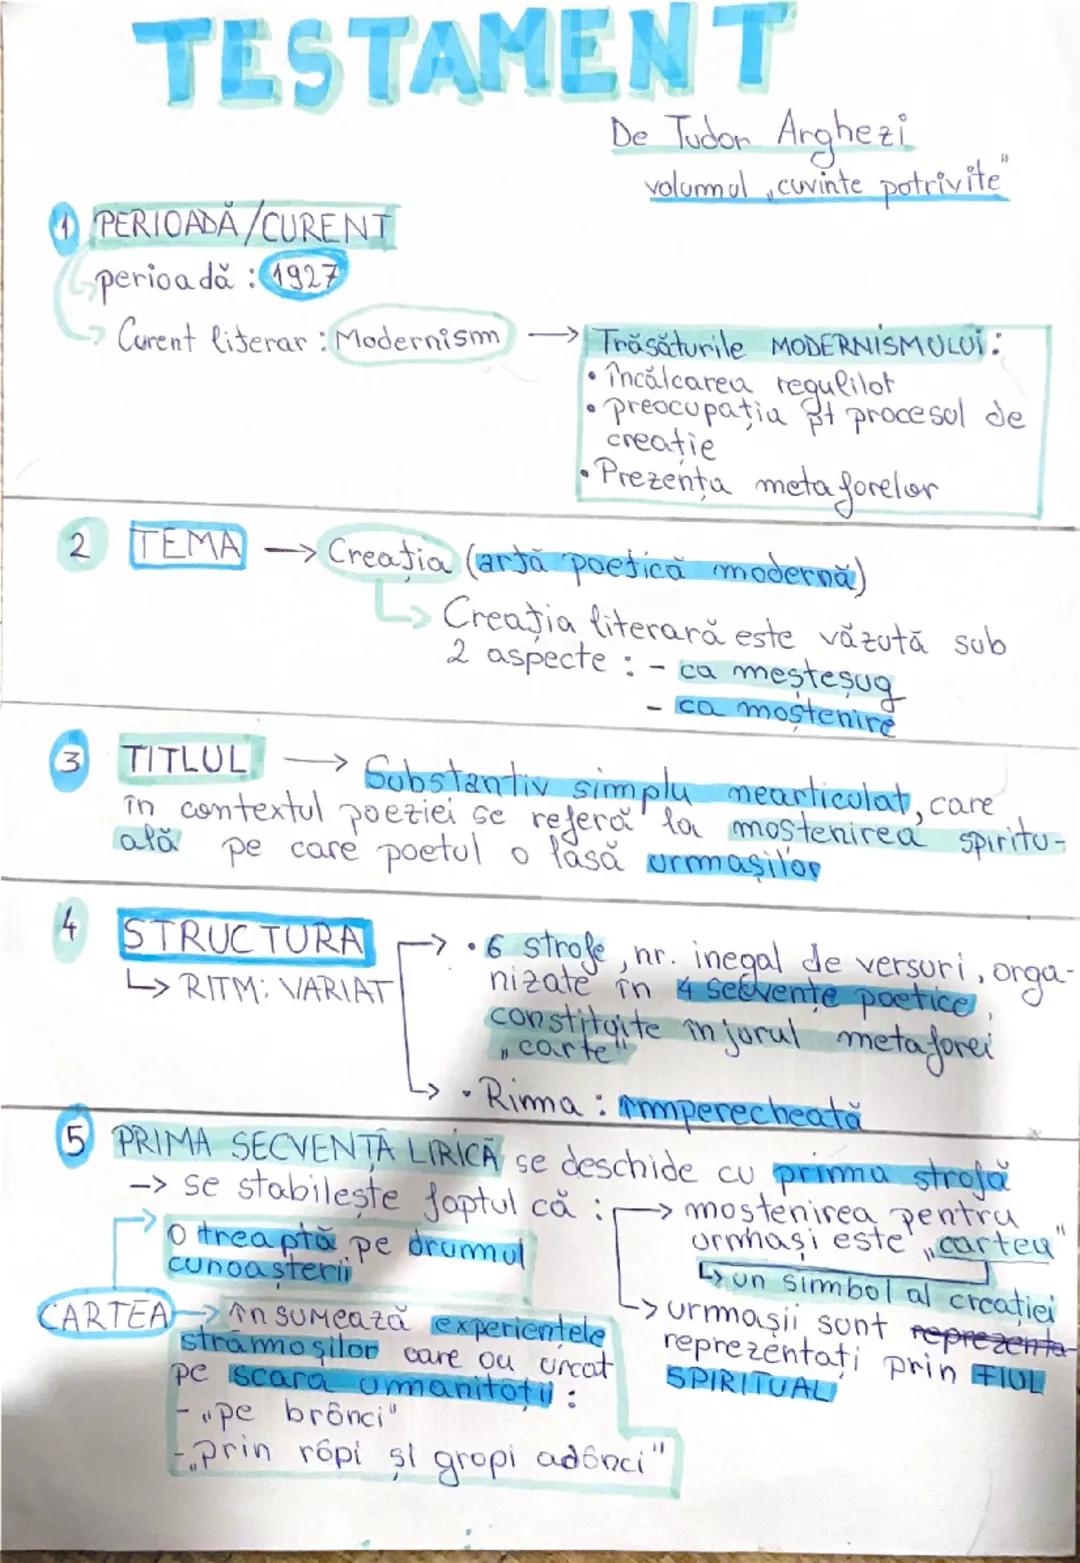 TESTAMENT
De Tudor Arghezi
volumul „cuvinte potrivite"
1 PERIOADĂ/CURENT
perioadă : 1927
Curent literar : Modernism → Trăsăturile MODERNISMULUI :
• încălcarea regulilor
• preocupația pt procesul de
creație
• Prezența metaforelor
2 TEMA → Creația (artă poetică modernă)
↳ Creația literară este văzută sub
2 aspecte : - ca meșteșug
- ca moștenire
3 TITLUL → Substantiv simplu nearticulat, care
în contextul poeziei se referă la moștenirea spiritu-
ală pe care poetul o lasă urmașilor
4 STRUCTURA → • 6 strofe, nr. inegal de versuri, orga-
nizate în 4 secvențe poetice,
constituite în jurul metaforei
„carte"
↳ RITM: VARIAT
↳ • Rima : împerecheată
5 PRIMA SECVENȚĂ LIRICĂ se deschide cu prima strofă
→ se stabilește faptul că : → moștenirea pentru
urmași este „cartea"
↳ un simbol al creației
→ urmașii sunt reprezenta-
reprezentați prin FIUL
SPIRITUAL
→ O treaptă pe drumul
cunoașterii
CARTEA → însumează experiențele
strămoșilor care au urcat
pe scara umanității :
- „pe brânci"
- „prin râpi și gropi adânci"